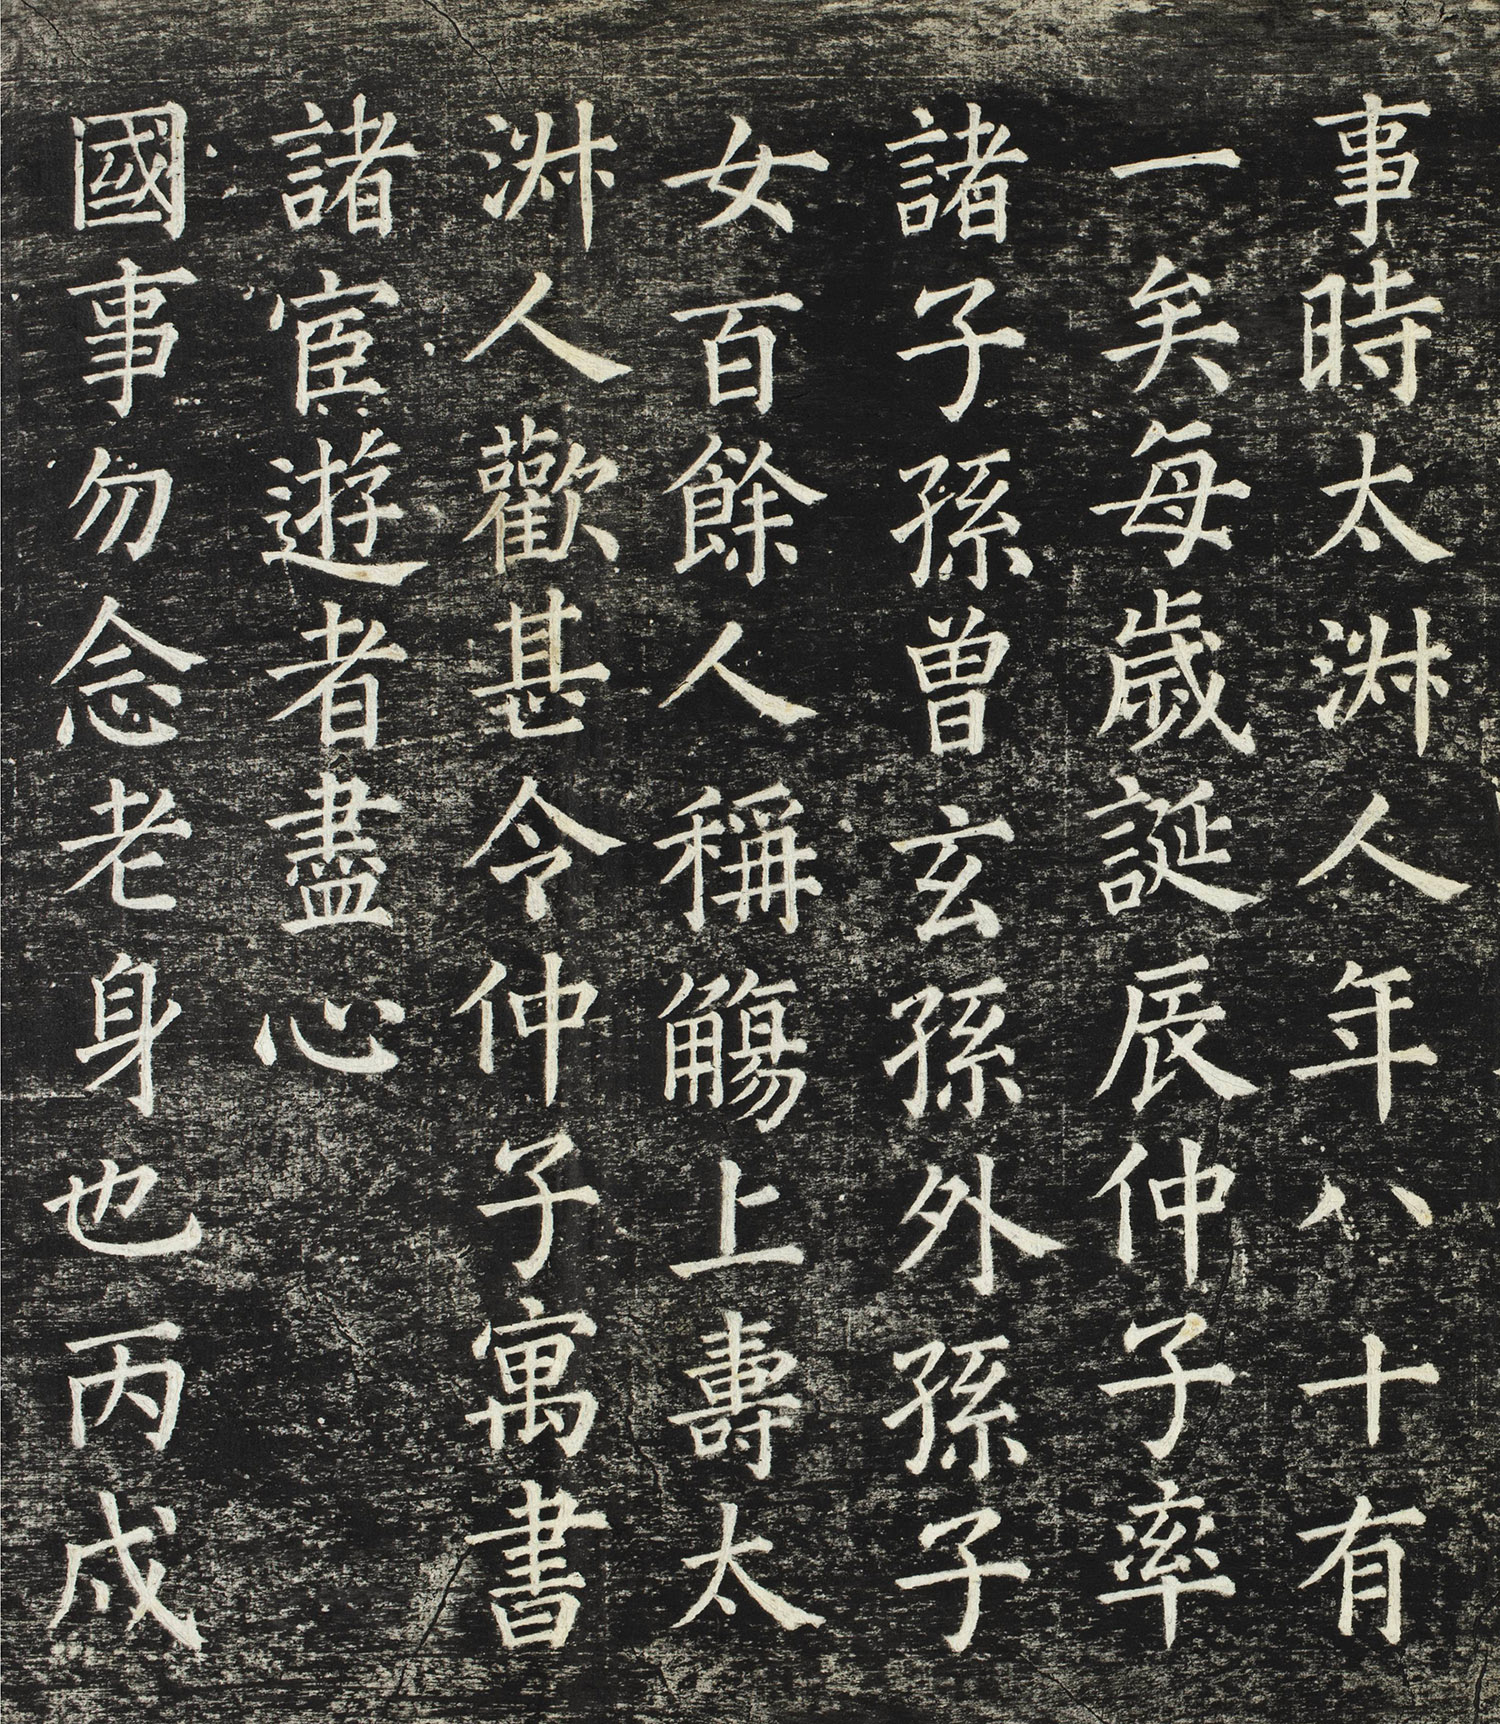 事時太淋人年八十有
一矣每歲誕辰仲子率
諸子孫曾玄孫外孫子
女百餘人稱觴上壽太
淋人歡甚令仲子寓書
諸宦遊者盡心
國事勿念老身也丙戌